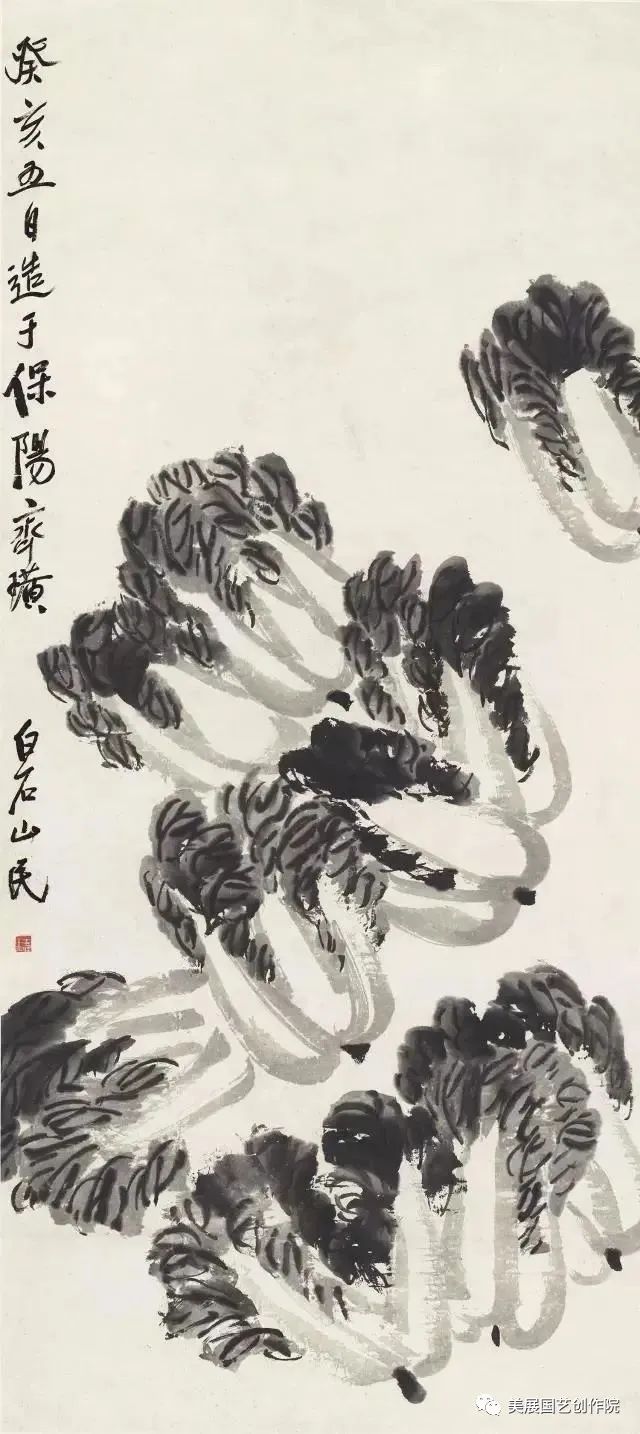 癸亥五月造于保陽齊璜
白石山民
美展国艺创作院